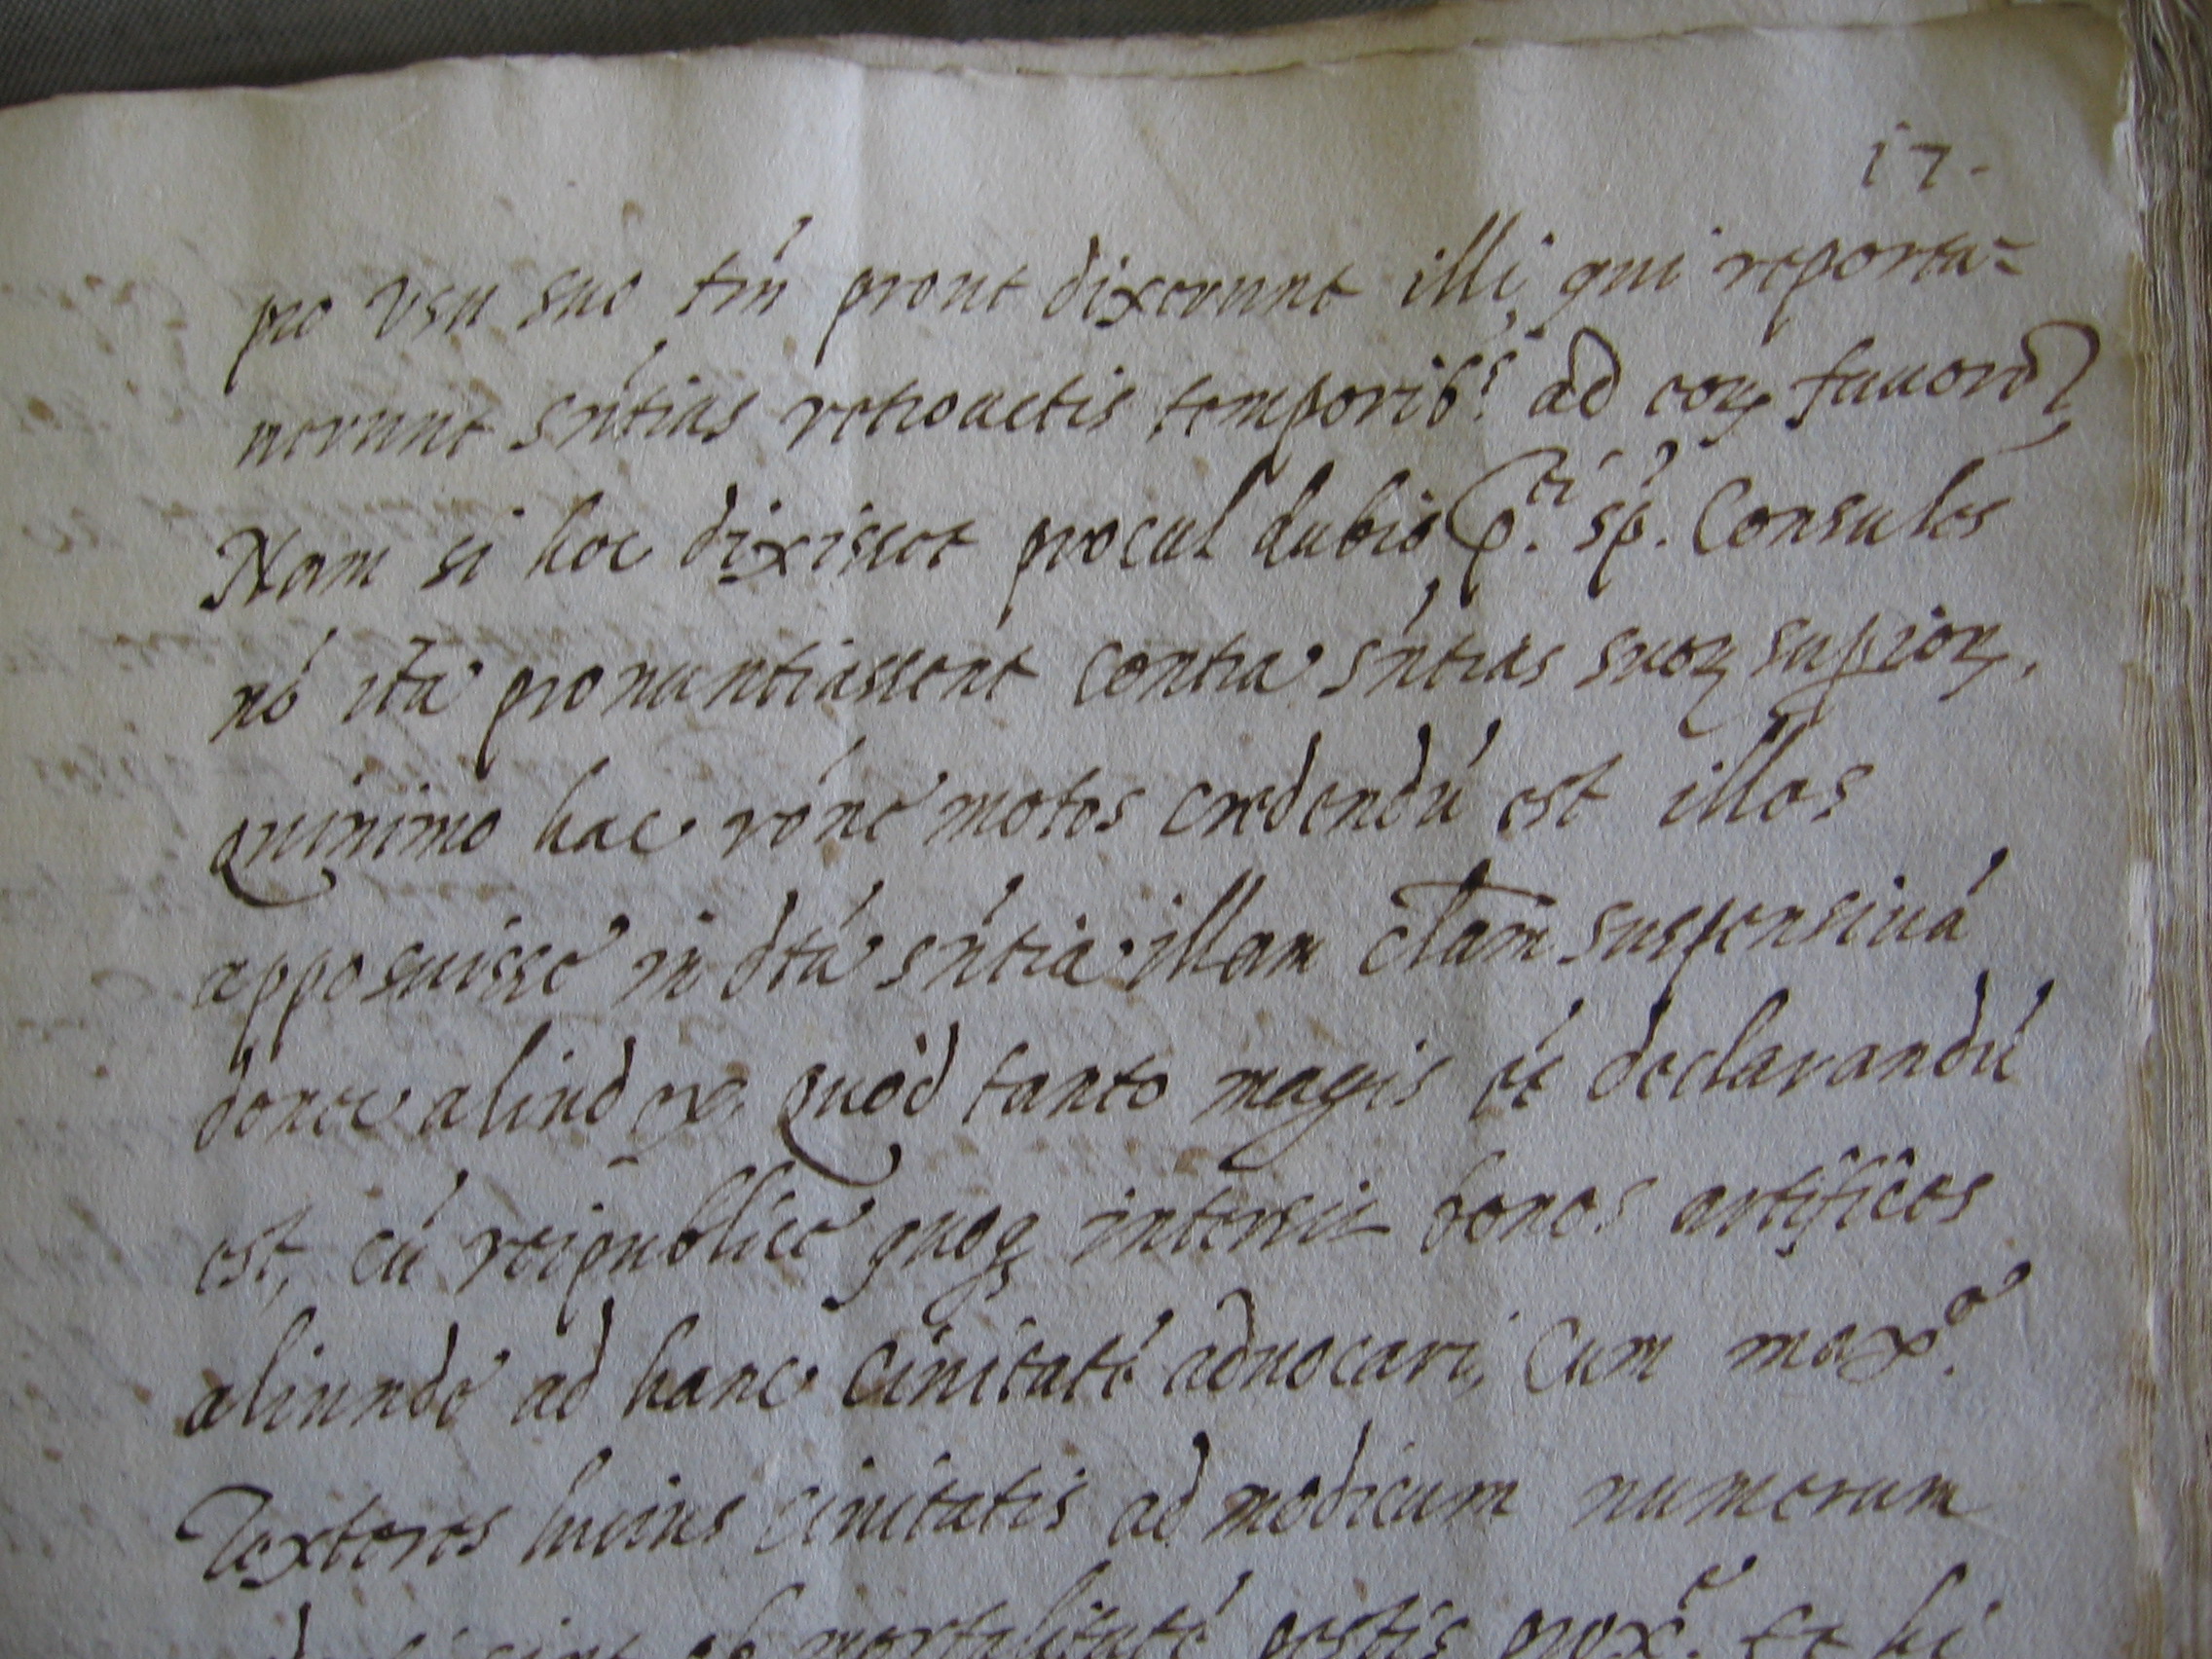 17.
pro usu suo tm̃ prout dixerunt illi, qui reporta=
uerunt sñtias retroactis temporib.s ad eoꝝ fauorẽ
Nam si hoc dixisset procul dubio, p.ti sp. Consules
nõ ita pronuntiassent contra sñtias suoꝝ supioꝝ,
quinimo hac rõne motos credendũ est illos
apposuisse in dtã sñtia illam clam̃ suspensiuã
donec aliud ex quòd tanto magis declarandũ
est, cũ reipublice quoqꝫ intersit bonos artifices
aliunde ad hanc ciuitatẽ aduocari, cum max.e
Textores huius ciuitatis ad modicum numerum
ob mortalitatẽ pestis prox.e et hi